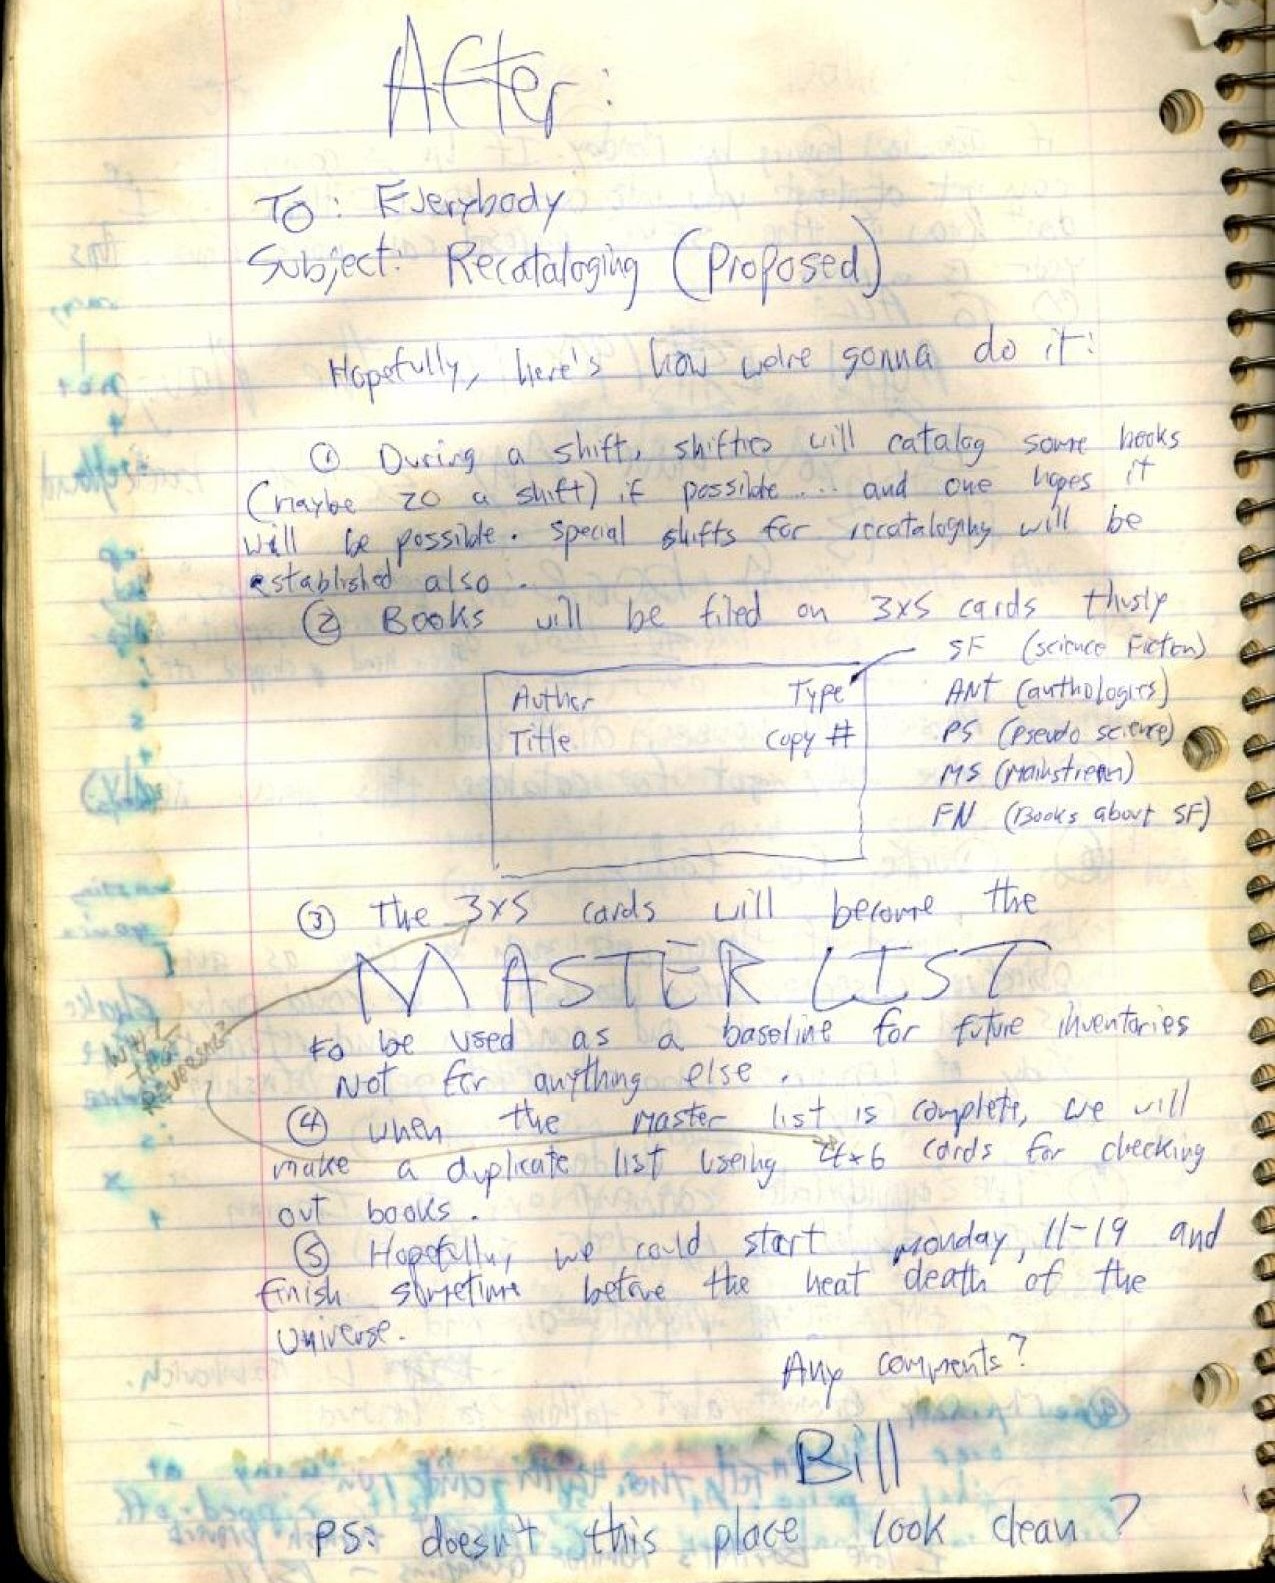 After:
To: Everybody
Subject: Recataloging (Proposed)
Hopefully, here's how we're gonna do it:
① During a shift, shifties will catalog some books
(maybe 20 a shift) if possible.... and one hopes it
will be possible. Special shifts for recataloging will be
established also.
② Books will be filed on 3x5 cards thusly
SF (science Fiction)
Author Type ANT (anthologies)
Title Copy # PS (pseudo science)
MS (Mainstream)
FN (Books about SF)
③ The 3x5 cards will become the
MASTER LIST
to be used as a baseline for future inventories
Not for anything else.
④ when the Master list is complete, we will
make a duplicate list useing 4x6 cards for checking
out books.
⑤ Hopefully, we could start monday, 11-19 and
finish sometime before the heat death of the
Universe.
Any comments?
Bill
PS: doesn't this place look clean?